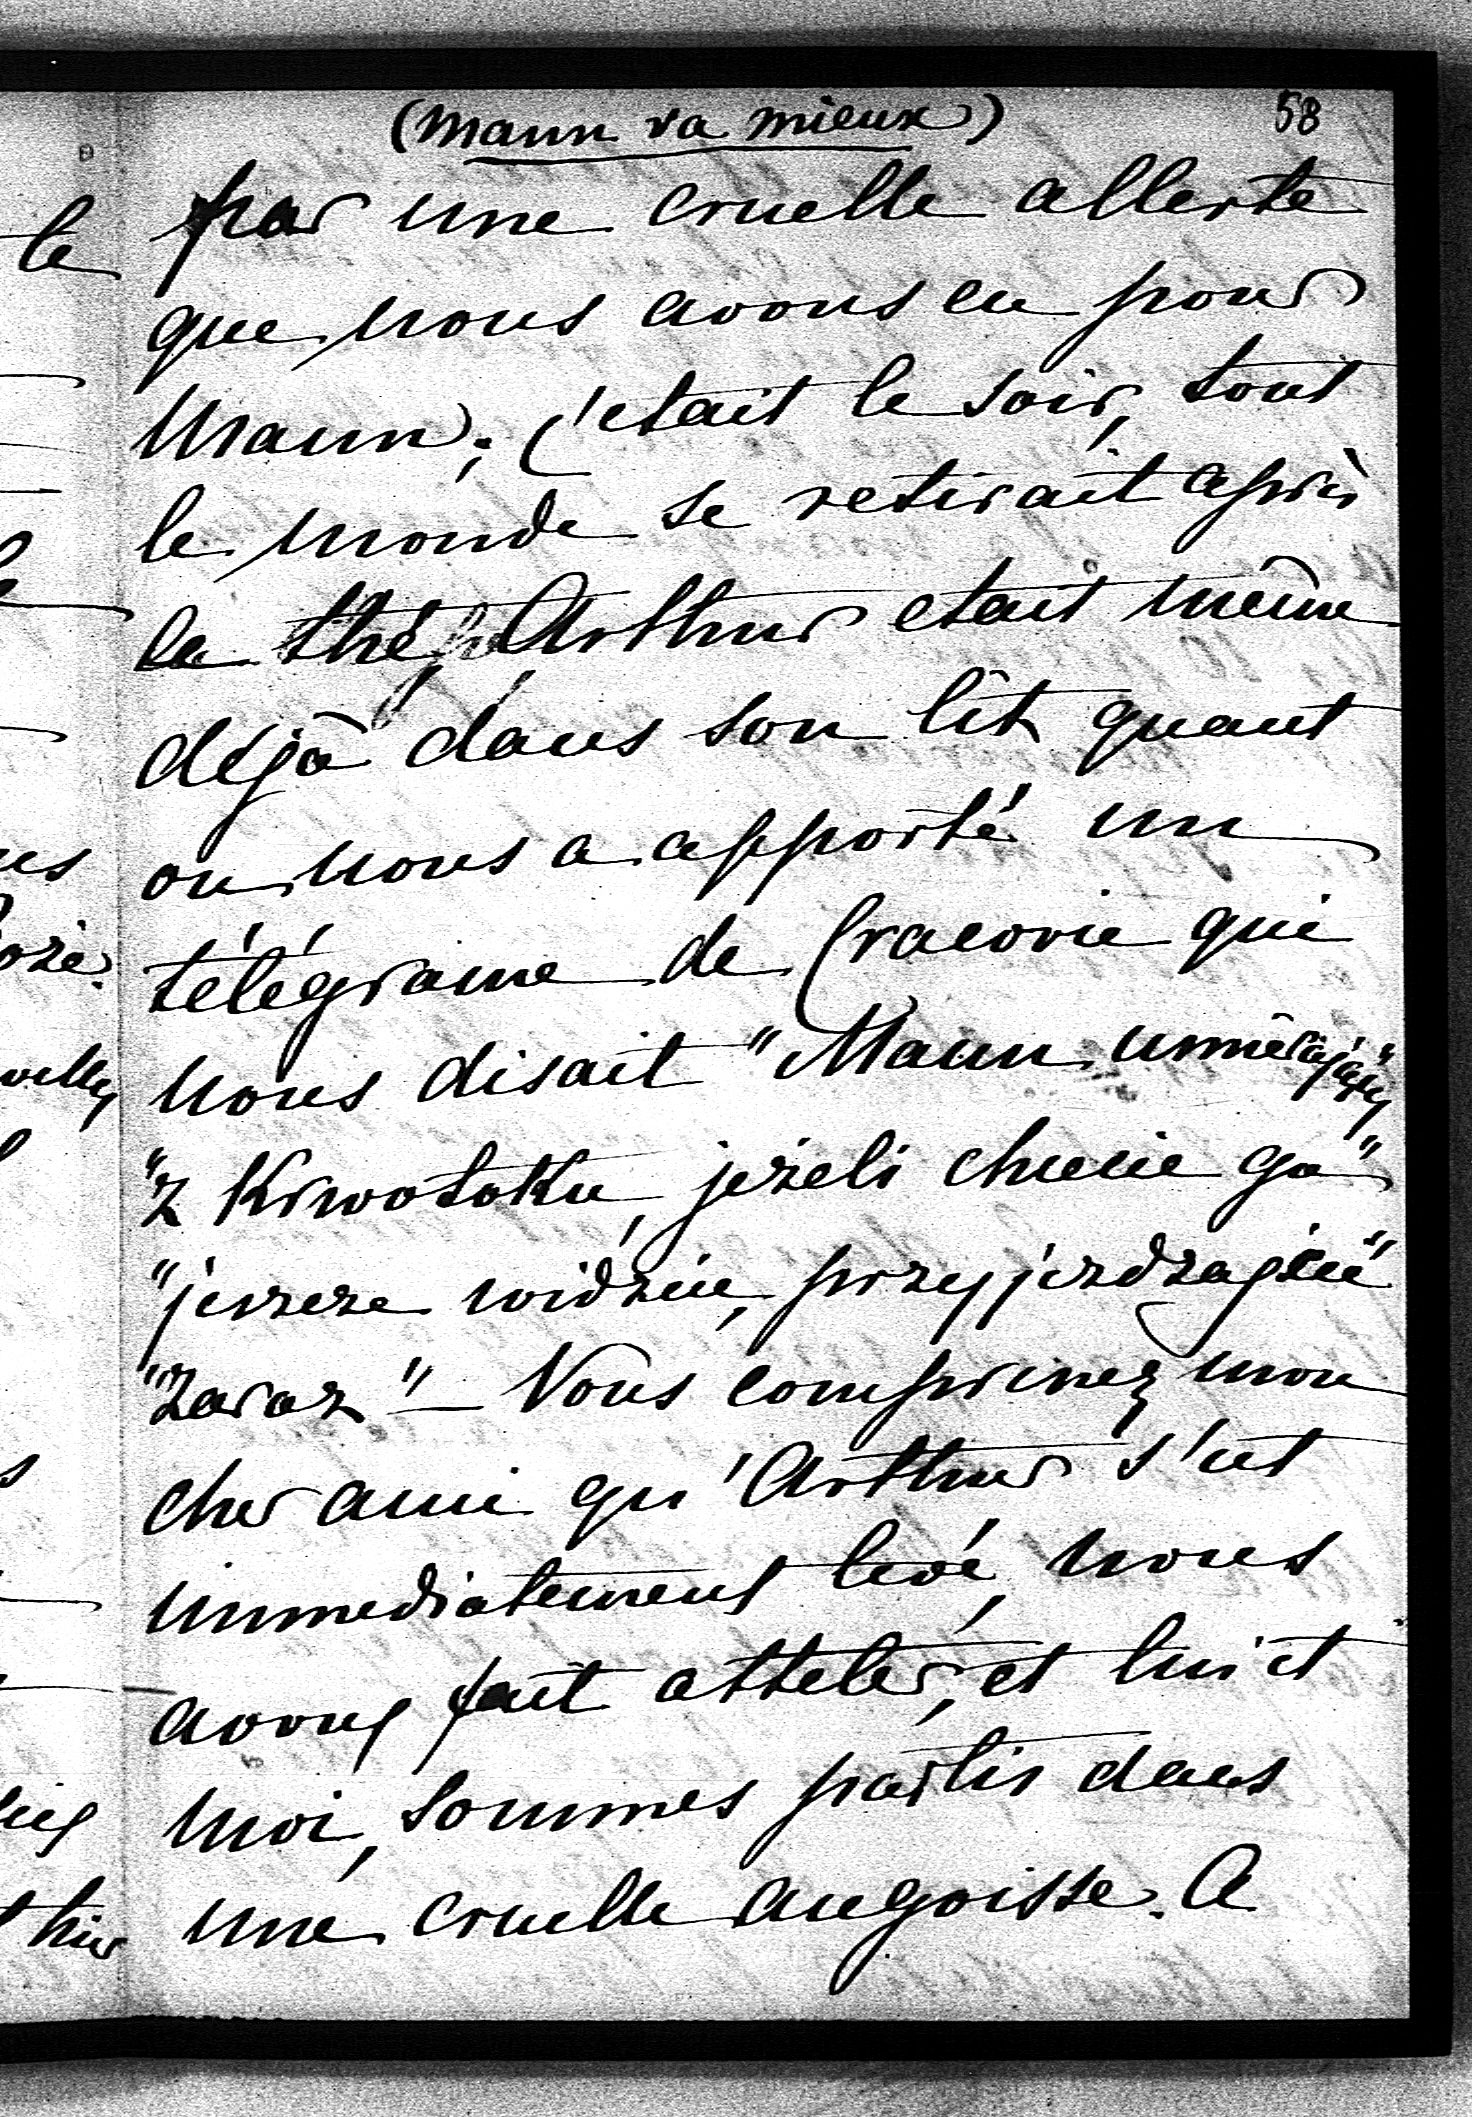 (Mann va mieux) 58
par une cruelle allerte
que nous avons eu pour
Mann; C'etait le soir, tout
le monde se retirait après
la thé, Arthur etait même
déjà dans son lit quant
on nous a apporté un
télégrame de Cracovie qui
nous disait "Mann umierający"
"z Krwotoku, jeżeli chcecie go"
"jeszcze widzieć, przyjezdzajcie"
"Zaraz" — Vous comprenez mon
cher ami qu'Arthur s'est
immediatement levé, nous
avons fait atteler, et lui et
moi, sommes partis dans
une cruelle angoisse. A